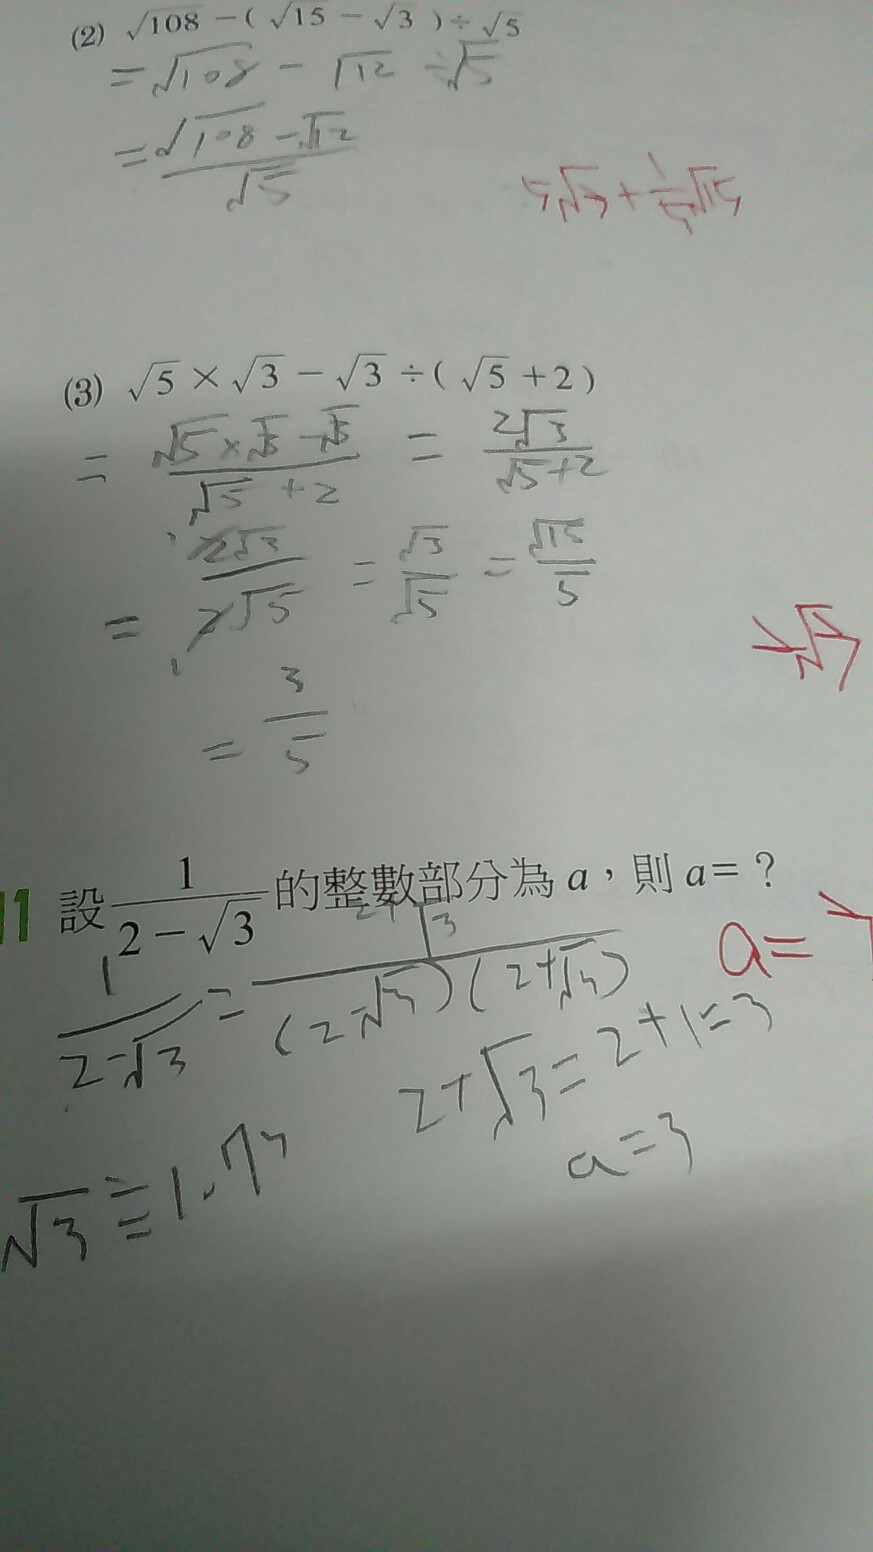 (2) √108 - ( √15 - √3 ) ÷ √5
= √108 - √12 ÷ √5
= (√108 - √12) / √5
5√3 + 1/5 √15
(3) √5 × √3 - √3 ÷ ( √5 + 2 )
= (√5 × √3 - √3) / (√5 + 2) = 2√3 / (√5 + 2)
= 2√3 / 2√5 = √3 / √5 = √15 / 5
= 3 / 5
2√3
11 設 1 / (2 - √3) 的整數部分為 a，則 a = ？
1 / (2 - √3) = 2 + √3 / (2 - √3)(2 + √3)
a =
2 + √3 = 2 + 1 = 3
a = 3
√3 ≒ 1.73